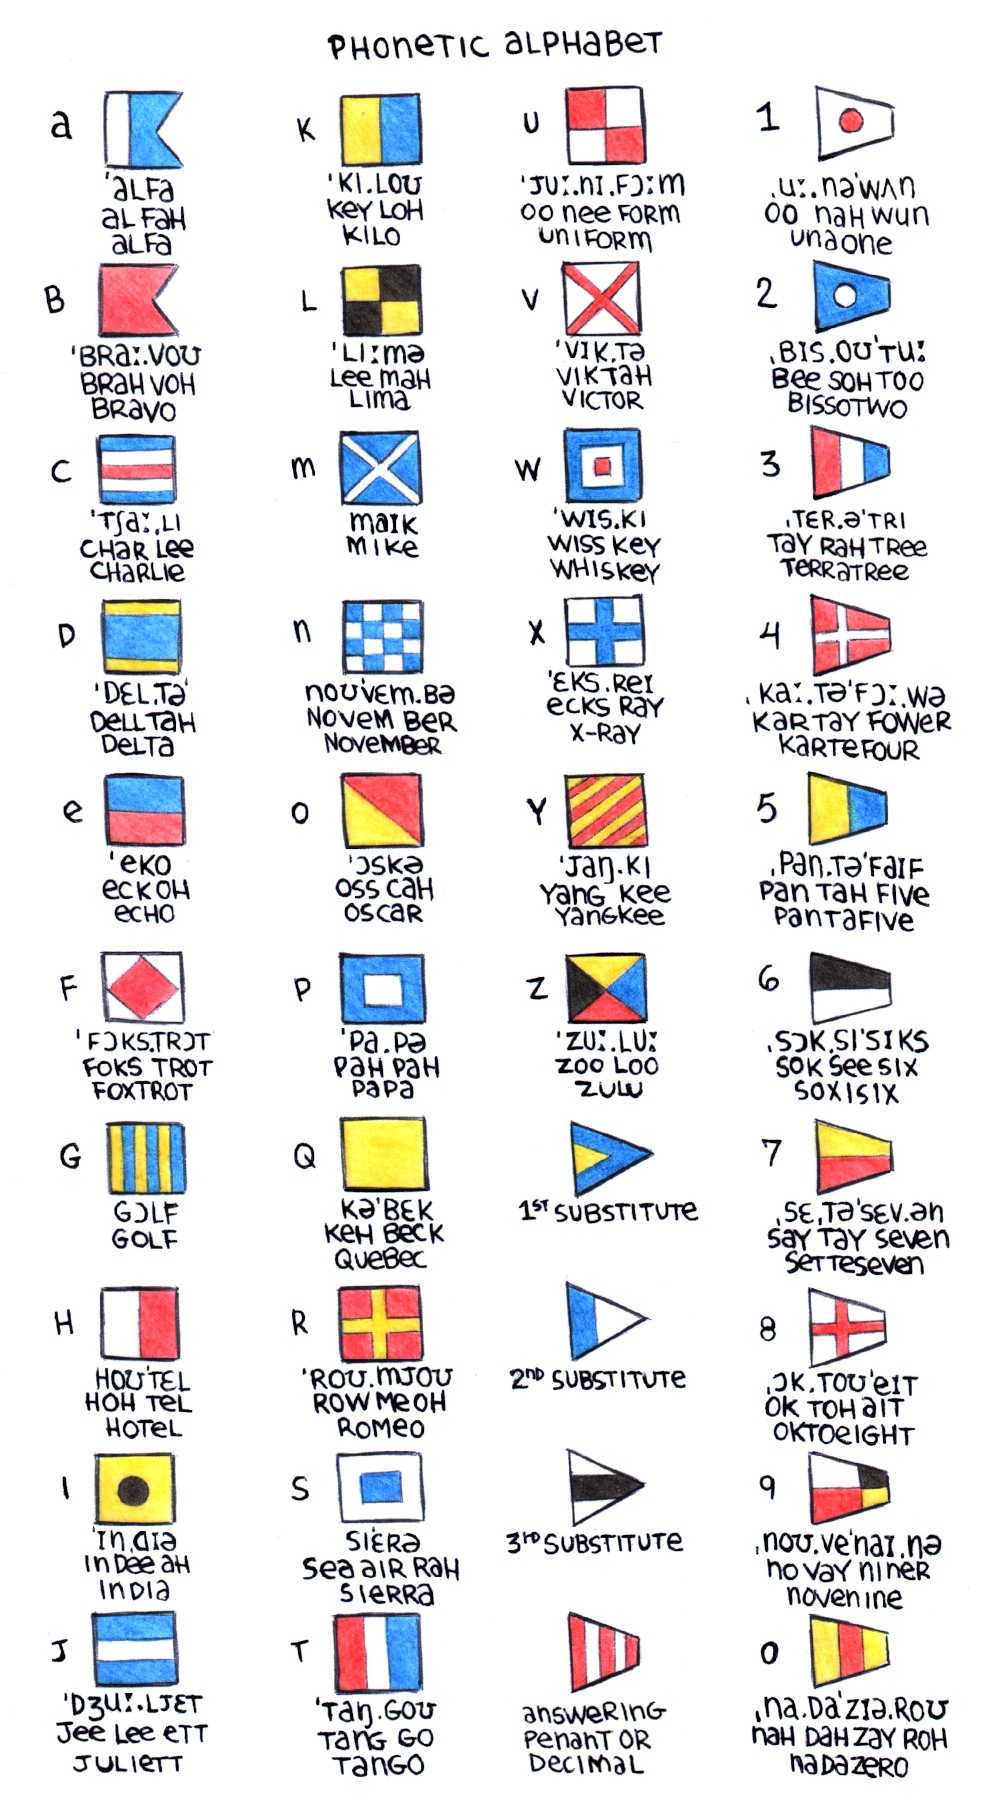 PHONETIC ALPHABET
a
'aLFa
aL FaH
aLFa
B
'BRaː.VOʊ
BRaH VOH
BRaVO
C
'Tʃaː,LI
CHaR Lee
CHaRLIe
D
'DEL.Tə
DeLL TaH
DeLTa
e
'eKO
eCK OH
eCHO
F
'FƆKS.TRƆT
FOKS TROT
FOXTROT
G
GƆLF
GOLF
H
HOʊ'TEL
HOH TeL
HOTeL
I
'In,dIə
In Dee aH
InDIa
J
'Dʒuː.LJET
Jee Lee eTT
JULIeTT
K
'KI.LOʊ
Key LOH
KILO
L
'LIːmə
Lee maH
Lima
m
maIK
MIKe
n
noʊ'vem.Bə
NOVeM BeR
NOVeMBeR
O
'ƆSKə
OSS CaH
OSCaR
P
'Pa.Pə
PaH PaH
PaPa
Q
Kə'BEK
KeH BeCK
QueBeC
R
'ROʊ.mJOʊ
ROW Me OH
ROMeO
S
SI'ERə
Sea aIR RaH
SIeRRa
T
'Taŋ.GOʊ
TanG GO
TanGO
U
'JUː.nI.FƆːm
OO nee FORm
UnIFORm
V
'VIK.Tə
VIKTaH
VICTOR
W
'WIS.KI
WISS Key
WHISKey
X
'EKS.ReI
eCKS RaY
X-RaY
Y
'Jaŋ.KI
YanG Kee
YanGKee
Z
'ZUː.LUː
ZOO LOO
ZULU
1ST SUBSTITUTe
2nd SUBSTITUTe
3rd SUBSTITUTe
answeRInG
PenanT OR
DeCImaL
1
,uː.nə'wʌn
OO naH wun
unaone
2
,BIS.OU'TUː
Bee SOH TOO
BISSOTWO
3
,TER.ə'TRI
TaY RaH TRee
TeRRaTRee
4
,Kaː.Tə'FƆː.Wə
KaR TaY FOWeR
KaRTeFOUR
5
,Pan.Tə'FaIF
Pan TaH FIVe
PanTaFIVe
6
,SƆK.SI'SIKS
SOK See SIX
SOXISIX
7
,SE,Tə'SEV.ən
SaY TaY Seven
SeTTeSeven
8
,ƆK.TOʊ'eIT
OK TOH aIT
OKTOeIGHT
9
,noʊ.ve'naI.nə
no vaY nIneR
novenIne
0
,na.Da'ZIə.ROʊ
naH DaH ZaY ROH
naDaZeRO